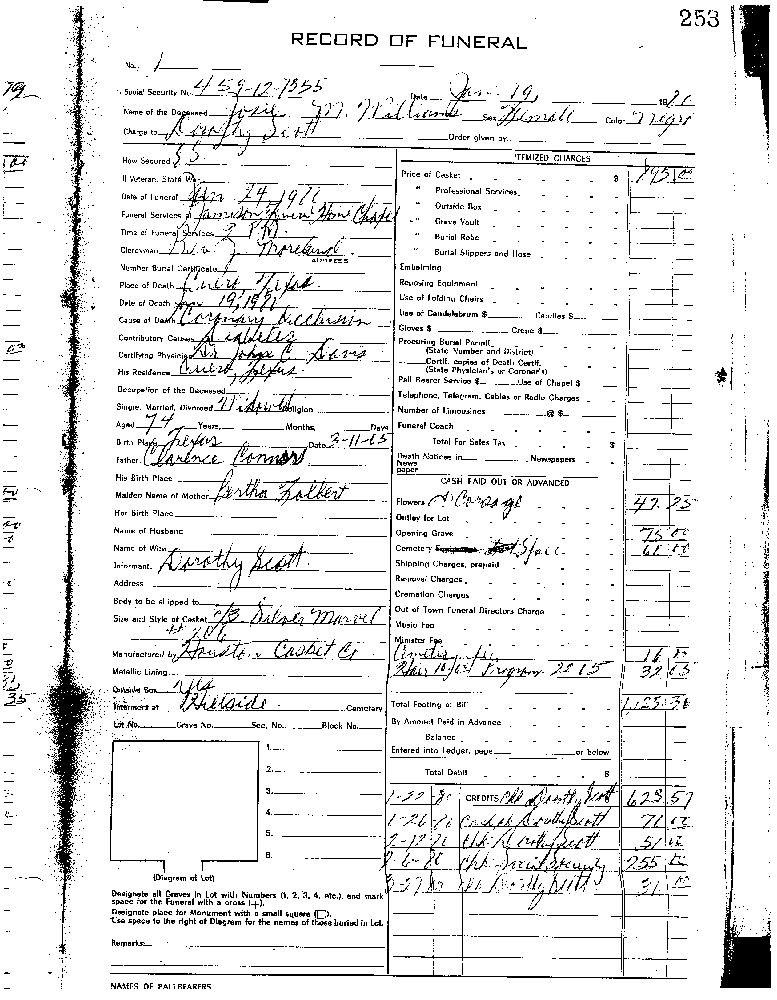 253
RECORD OF FUNERAL
No. 1
Social Security No. 459-12-7355 Date Jan 19, 19
Name of the Deceased Josie M. Williams Sex Female Color Negro
Charge to Dorothy Scott Order given by
How Secured S S
If Veteran, State War
Date of Funeral
Funeral Services at Home Chapel
Time of Funeral Services 3 P.M.
Clergyman Rev. Moreland
ADDRESS
Number Burial Certificate
Place of Death Cuero Texas
Date of Death Jan 19,
Cause of Death Coronary Occlusion
Contributory Causes Diabetes
Certifying Physician Dr John C. Davis
His Residence Cuero Texas
Occupation of the Deceased
Single, Married, Divorced Widowed Religion
Aged 74 Years, Months, Days
Birth Place Texas Date 3-11-05
Father Clarence Connor
His Birth Place
Maiden Name of Mother Bertha
Her Birth Place
Name of Husband
Name of Wife
Informant Dorothy Scott
Address
Body to be shipped to
Size and Style of Casket 6/3 Silver Marvel
Manufactured by Houston Casket Co
Metallic Lining
Outside Box
Interment at Hillside Cemetery
Lot No. Grave No. Sec. No. Block No.
1.
2.
3.
4.
5.
6.
(Diagram of Lot)
Designate all Graves in Lot with Numbers (1, 2, 3, 4, etc.), and mark
space for the Funeral with a cross (+).
Designate place for Monument with a small square (□).
Use space to the right of Diagram for the names of those buried in Lot.
Remarks:
NAMES OF PALLBEARERS
ITEMIZED CHARGES
Price of Casket $ 895 00
" Professional Services
" Outside Box
" Grave Vault
" Burial Robe
" Burial Slippers and Hose
Embalming
Removing Equipment
Use of Folding Chairs
Use of Candelabrum $ Candles $
Gloves $ Crepe $
Procuring Burial Permit
(State Number and District)
Certif. copies of Death Certif.
(State Physician's or Coroner's)
Pall Bearer Service $ Use of Chapel $
Telephone, Telegram, Cables or Radio Charges
Number of Limousines @ $
Funeral Coach
Total For Sales Tax $
Death Notices in Newspapers
News
paper
CASH PAID OUT OR ADVANCED
Flowers Corsage 47 25
Outlay for Lot
Opening Grave 75 00
Cemetery Space 60 00
Shipping Charges, prepaid
Removal Charges
Cremation Charges
Out of Town Funeral Directors Charge
Music Fee
Minister Fee
16 00
Hair Program 32
Total Footing of Bill
By Amount Paid in Advance
Balance
Entered into Ledger, page or below
Total Debit $
CREDITS Chk Dorothy Scott 623 57
Dorothy Scott 71 00
Chk Dorothy Scott 51 00
Chk Social Security 255 00
Chk Dorothy Scott 31 00